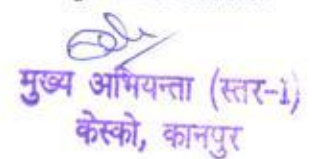 मुख्य अभियन्ता (स्तर-1)
केस्को, कानपुर